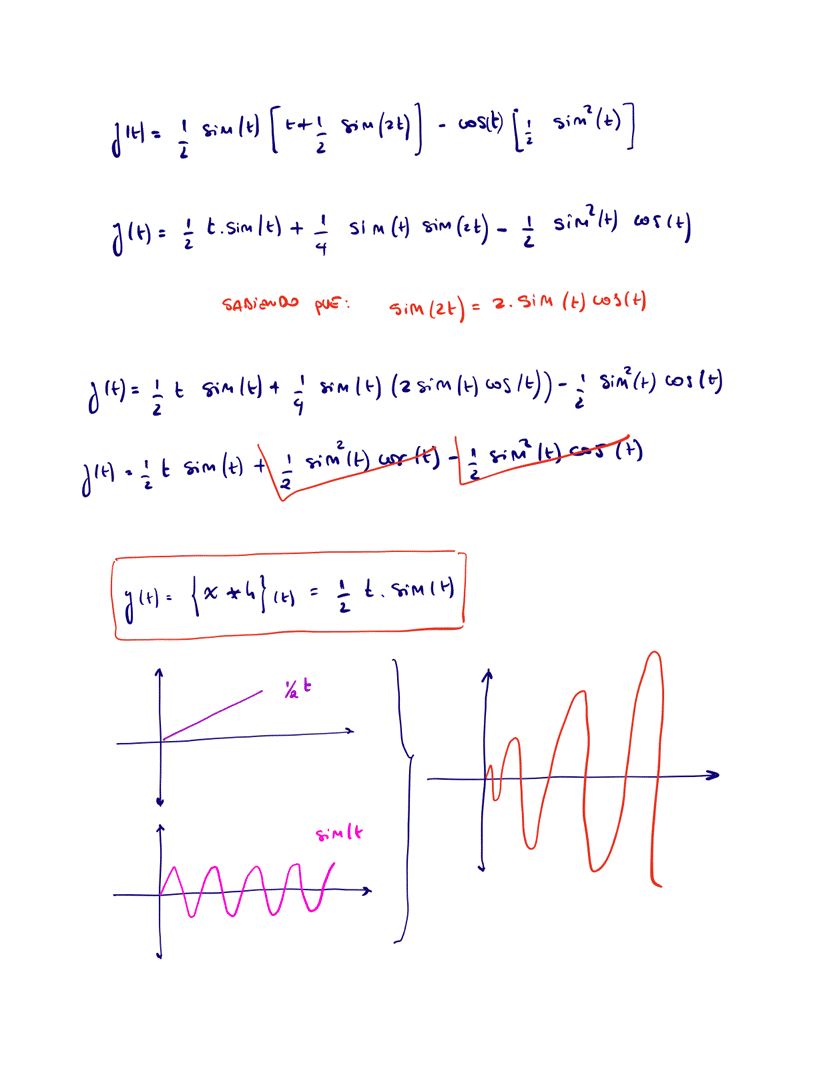 y(t) = 1/2 sin(t) [t + 1/2 sin(2t)] - cos(t) [1/2 sin²(t)]
y(t) = 1/2 t.sin(t) + 1/4 sin(t) sin(2t) - 1/2 sin²(t) cos(t)
SABIENDO QUE: sin(2t) = 2.sin(t) cos(t)
y(t) = 1/2 t sin(t) + 1/4 sin(t) (2 sin(t) cos(t)) - 1/2 sin²(t) cos(t)
y(t) = 1/2 t sin(t) + 1/2 sin²(t) cos(t) - 1/2 sin²(t) cos(t)
y(t) = {x * h}(t) = 1/2 t. sin(t)
1/2 t
sin(t